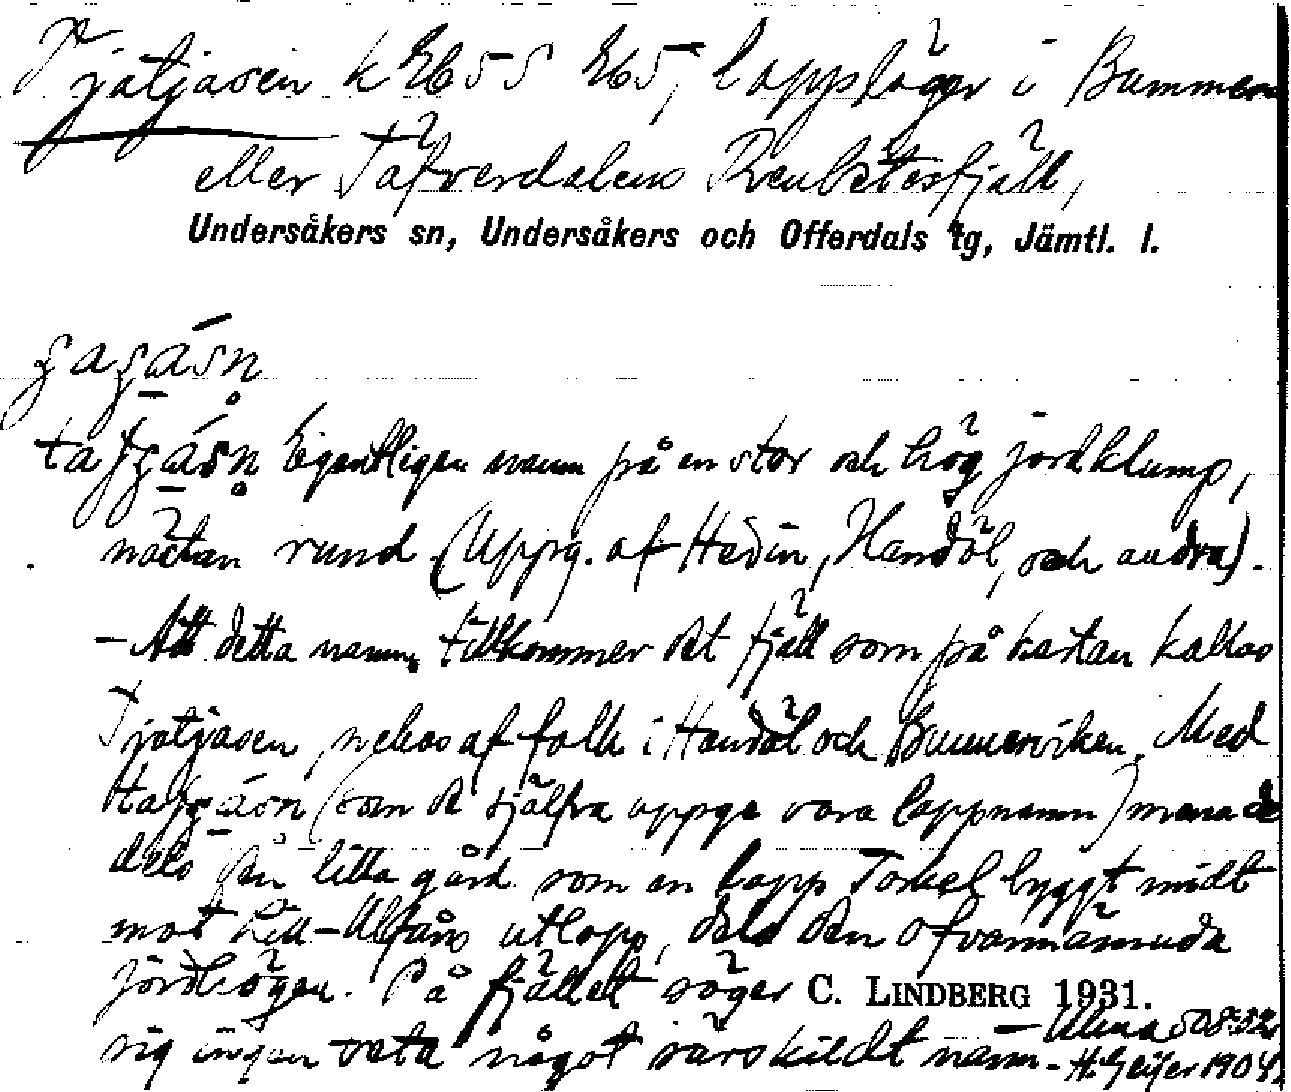 Tjatjasen k Eb5S Eb5, lappläger i Bummer
eller Täfverdalens Renbetesfjäll,
Undersåkers sn, Undersåkers och Offerdals tg, Jämtl. l.
Egentligen namn på en stor och hög jordklump,
nästan rund (Uppg. af Hedin, Handöl, och andra).
- Att detta namn tillkommer det fjäll som på kartan kallas
Tjatjasen, nekas af folk i Handöl och Bunnerviken. Med
(som de själfva uppge vara lappnamn) mena de
dels den lilla gård som en lapp Torkel byggt midt
mot Lill-Ulfåns utlopp, dels den ofvannämnda
jordhögen. På fjället säger C. LINDBERG 1931.
sig ingen veta något särskildt namn. - Ulma 508:
H. Geijer 1904.